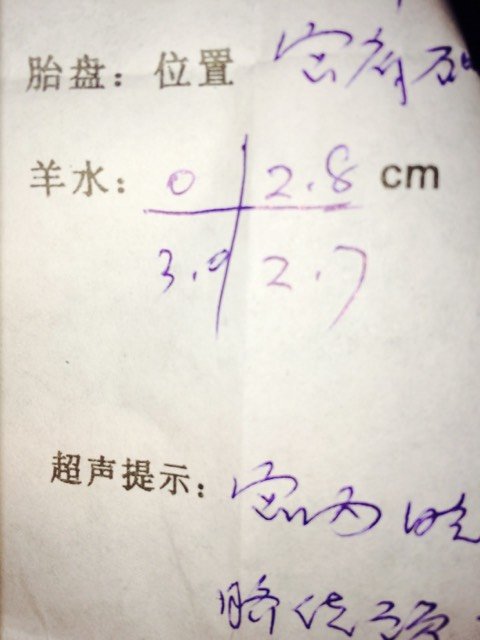 胎盘：位置 宫
羊水：0 2.8 cm
2.7
超声提示：宫内晚
脐绕颈